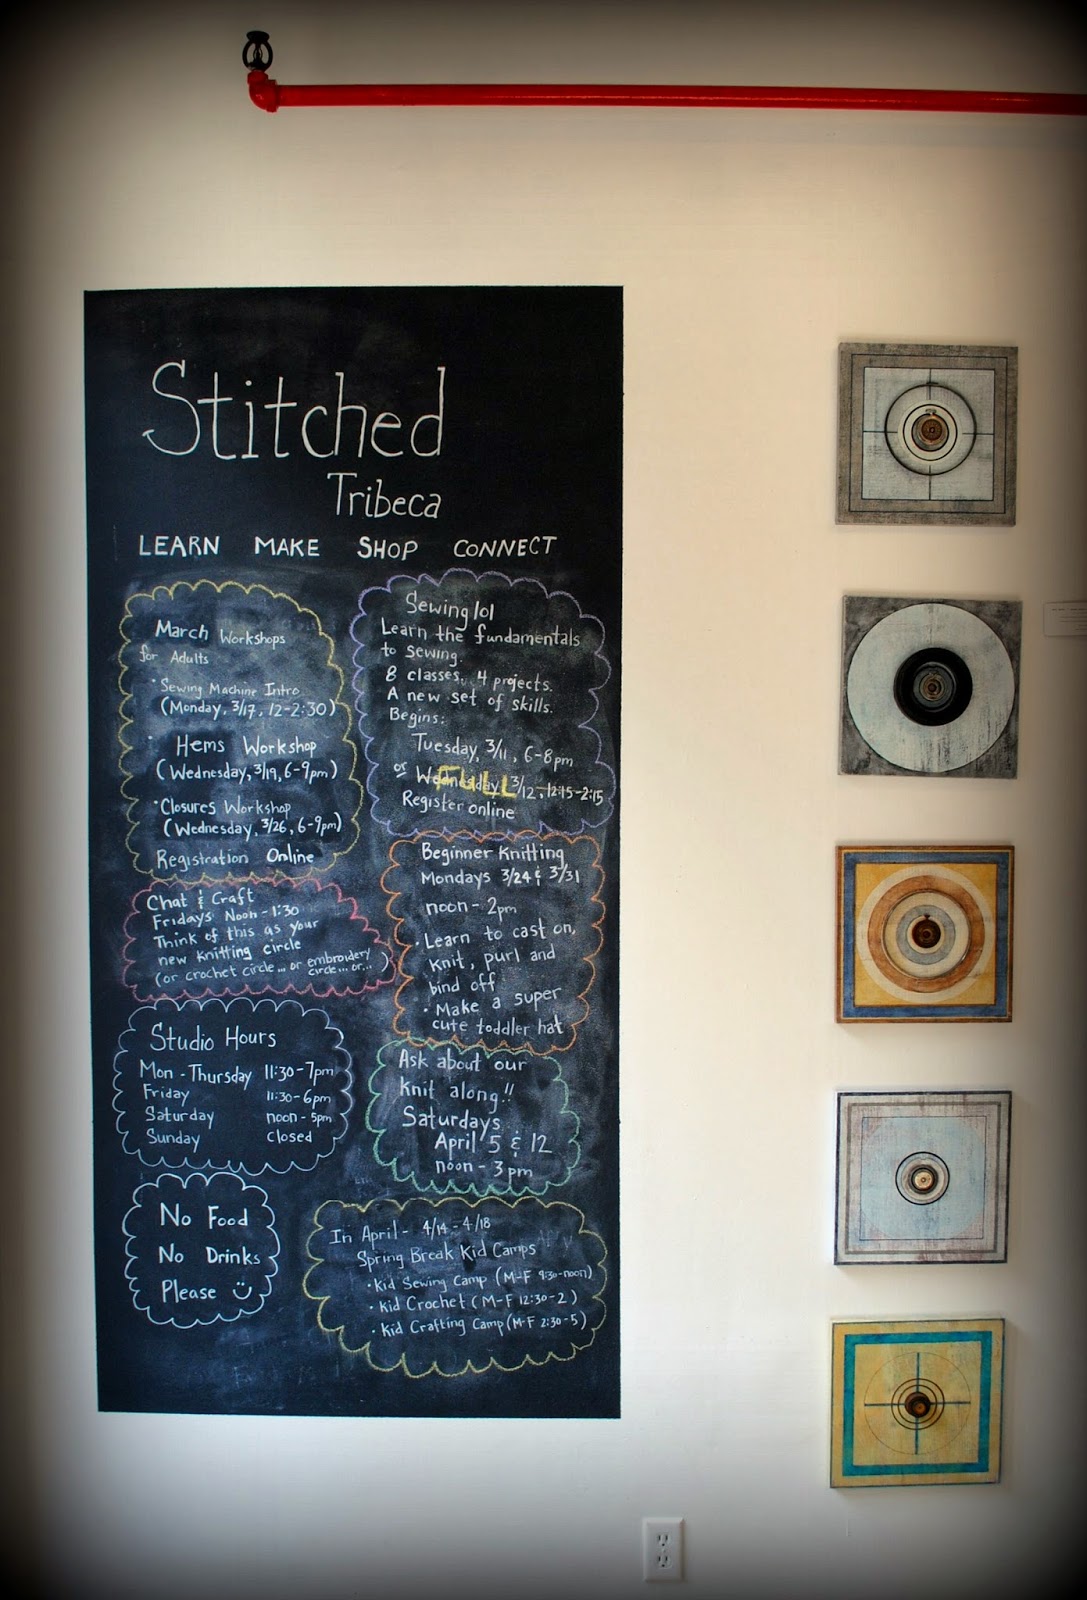 Stitched
Tribeca
LEARN MAKE SHOP CONNECT
March Workshops
for Adults
• Sewing Machine Intro
(Monday, 3/17, 12-2:30)
• Hems Workshop
(Wednesday, 3/19, 6-9pm)
• Closures Workshop
(Wednesday, 3/26, 6-9pm)
Registration Online
Sewing 101
Learn the fundamentals
to sewing.
8 classes, 4 projects.
A new set of skills.
Begins:
Tuesday, 3/11, 6-8pm
or Wednesday, 3/12, 12:15-2:15
FULL
Register online
Chat & Craft
Fridays Noon-1:30
Think of this as your
new knitting circle
(or crochet circle... or embroidery
circle... or...)
Beginner Knitting
Mondays 3/24 & 3/31
noon-2pm
• Learn to cast on,
knit, purl and
bind off
• Make a super
cute toddler hat
Studio Hours
Mon-Thursday 11:30-7pm
Friday 11:30-6pm
Saturday noon-5pm
Sunday closed
Ask about our
knit along!!
Saturdays
April 5 & 12
noon-3pm
No Food
No Drinks
Please
In April - 4/14-4/18
Spring Break Kid Camps
• Kid Sewing Camp (M-F 9:30-noon)
• Kid Crochet (M-F 12:30-2)
• Kid Crafting Camp (M-F 2:30-5)